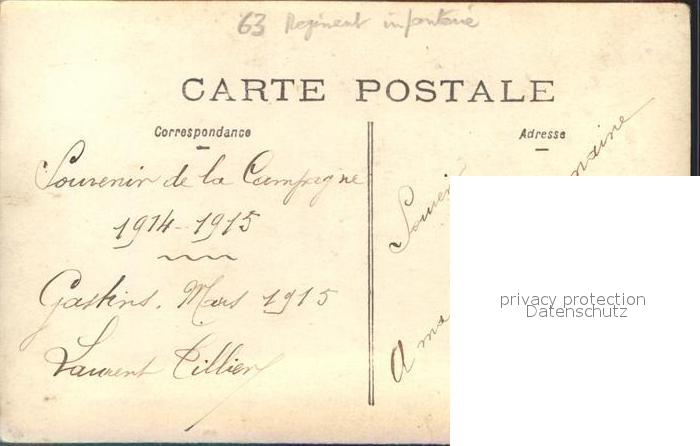 63 Regiment infanterie
CARTE POSTALE
Correspondance
Adresse
Souvenir de la Campagne
1914-1915
Gastins. Mars 1915
Laurent Tillier
A ma
privacy protection
Datenschutz